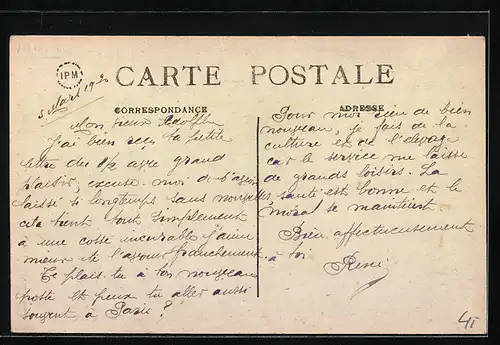 IPM
CARTE POSTALE
5 Mars 1920
CORRESPONDANCE
Mon vieux Adolphe
J'ai bien reçu ta petite
lettre du 1/2 avec grand
plaisir, excuse-moi de t'avoir
laissé si longtemps sans nouvelles,
cela tient tout simplement
à une cosse incurable j'aime
mieux te l'avouer franchement
Te plais tu à ton nouveau
poste et peux tu aller aussi
souvent à Paris ?
ADRESSE
Pour moi rien de bien
nouveau, je fais de la
culture et de l'élevage
car le service me laisse
de grands loisirs. La
santé est bonne et le
moral se maintient.
Bien affectueusement
à toi
René